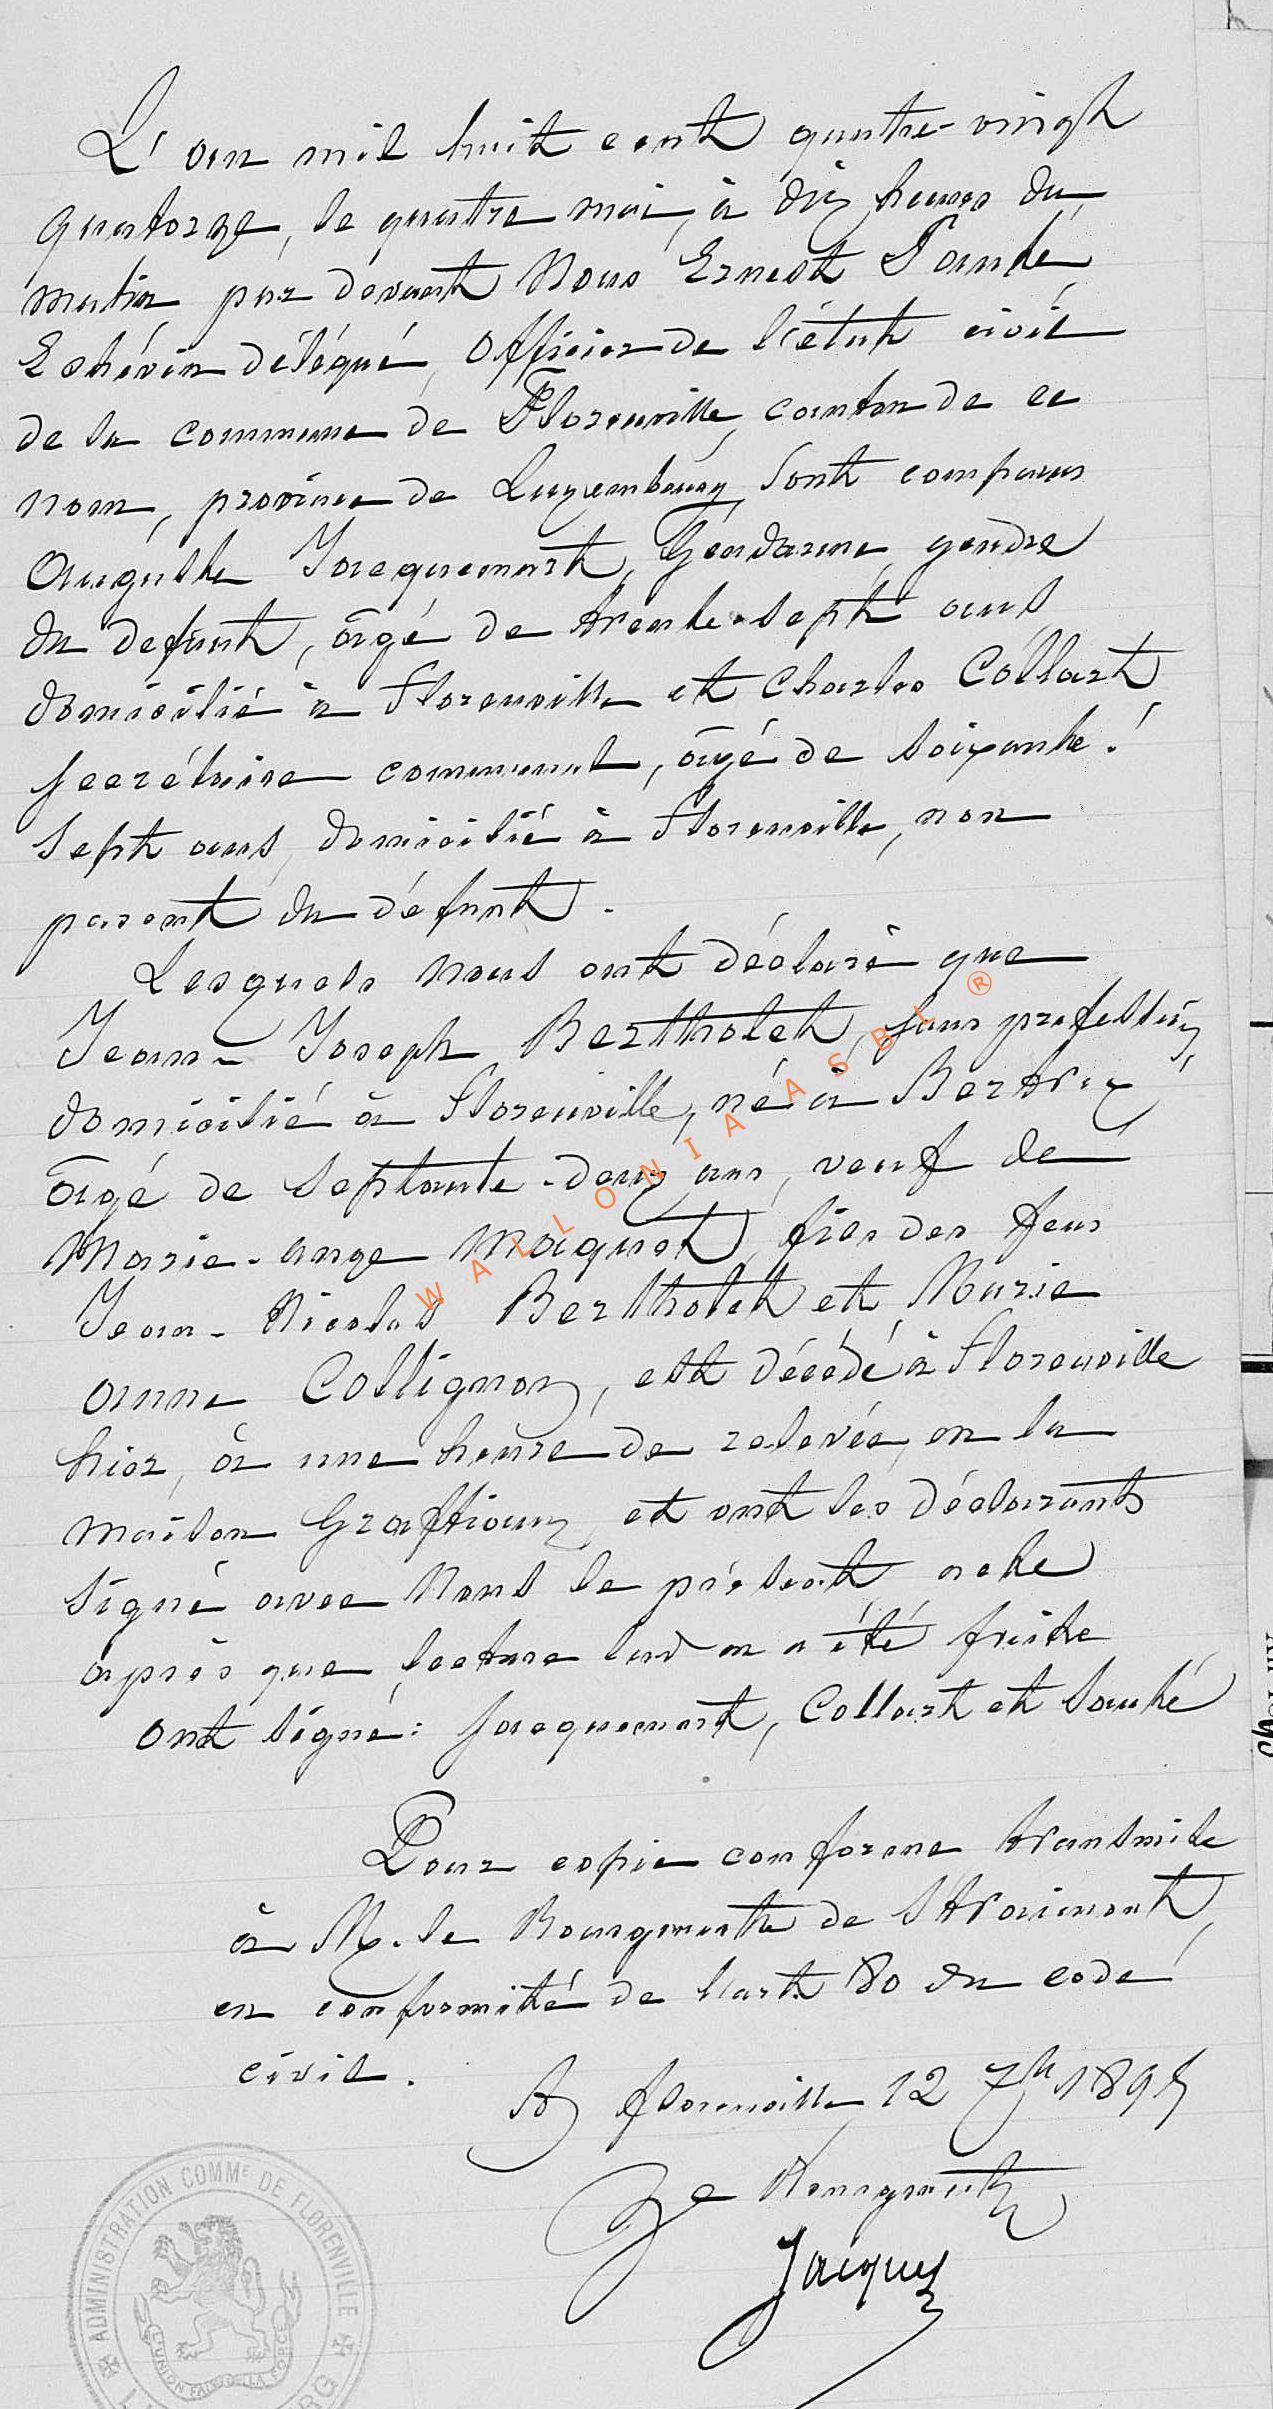 L'an mil huit cent quatre-vingt
quatorze, le quatre mai, à dix heures du
matin par devant Nous Ernest Santé
Echévin délégué, officier de l'état civil
de la commune de Florenville, canton de ce
nom, province de Luxembourg, sont comparus
Auguste Jacquemart, Gendarme, gendre
du defunt, âgé de trente-sept ans
domicilié à Florenville et Charles Collart
secrétaire communal, âgé de soixante-
sept ans, domicilié à Florenville, non
parent du défunt.
Lesquels nous ont déclaré que
Jean-Joseph Bertholet, sans profession,
domicilié à Florenville, né à Bertrix
âgé de septante-deux ans, veuf de
Marie-ange Maquet, fils des feus
Jean-Nicolas Bertholet et Marie
anne Collignon, est décédé à Florenville
hier, à une heure de relevée, en la
maison et ont les déclarants
signé avec Nous le présent acte
après que lecture leur en a été faite
ont signé: Jacquemart, Collart et Santé
Pour copie conforme transmise
à M. le Bourgmestre de Straimont,
en conformité de l'art 80 du code
civil.
A Florenville 12 7bre 1895
Le Bourgmestre
Jacques
ADMINISTRATION COMMe DE FLORENVILLE
L'UNION FAIT LA FORCE
WALLONIA ASBL ®